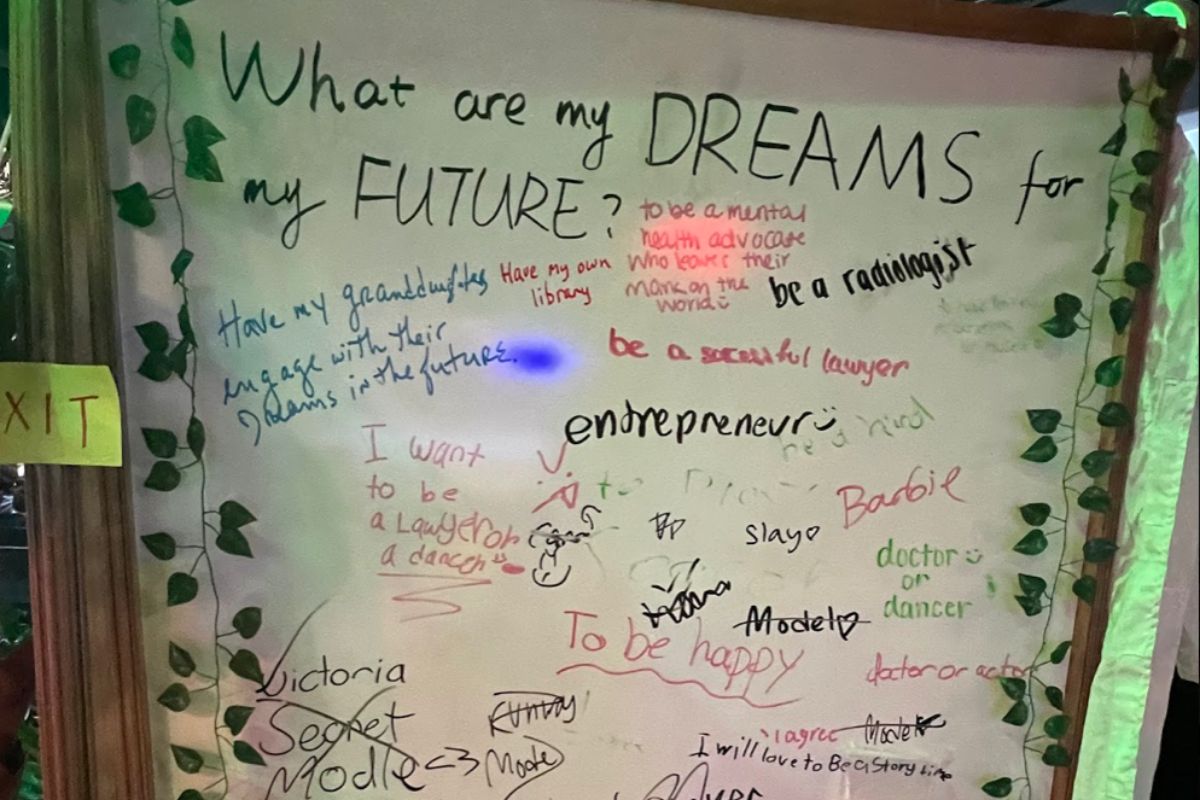 What are my DREAMS for
my FUTURE?
to be a mental
health advocate
who leaves their
mark on the
world
Have my own
library
be a radiologist
Have my granddaughters
engage with their
Dreams in the future.
EXIT
be a successful lawyer
entrepreneur
be a
I want
to be
a Lawyer or
a dancer
to
Barbie
slay
doctor
or
dancer
Model
To be happy
doctor or actor
Victoria
Secret
Modle <3
Runway
Model
I agree
Model
I will love to Be a Story time